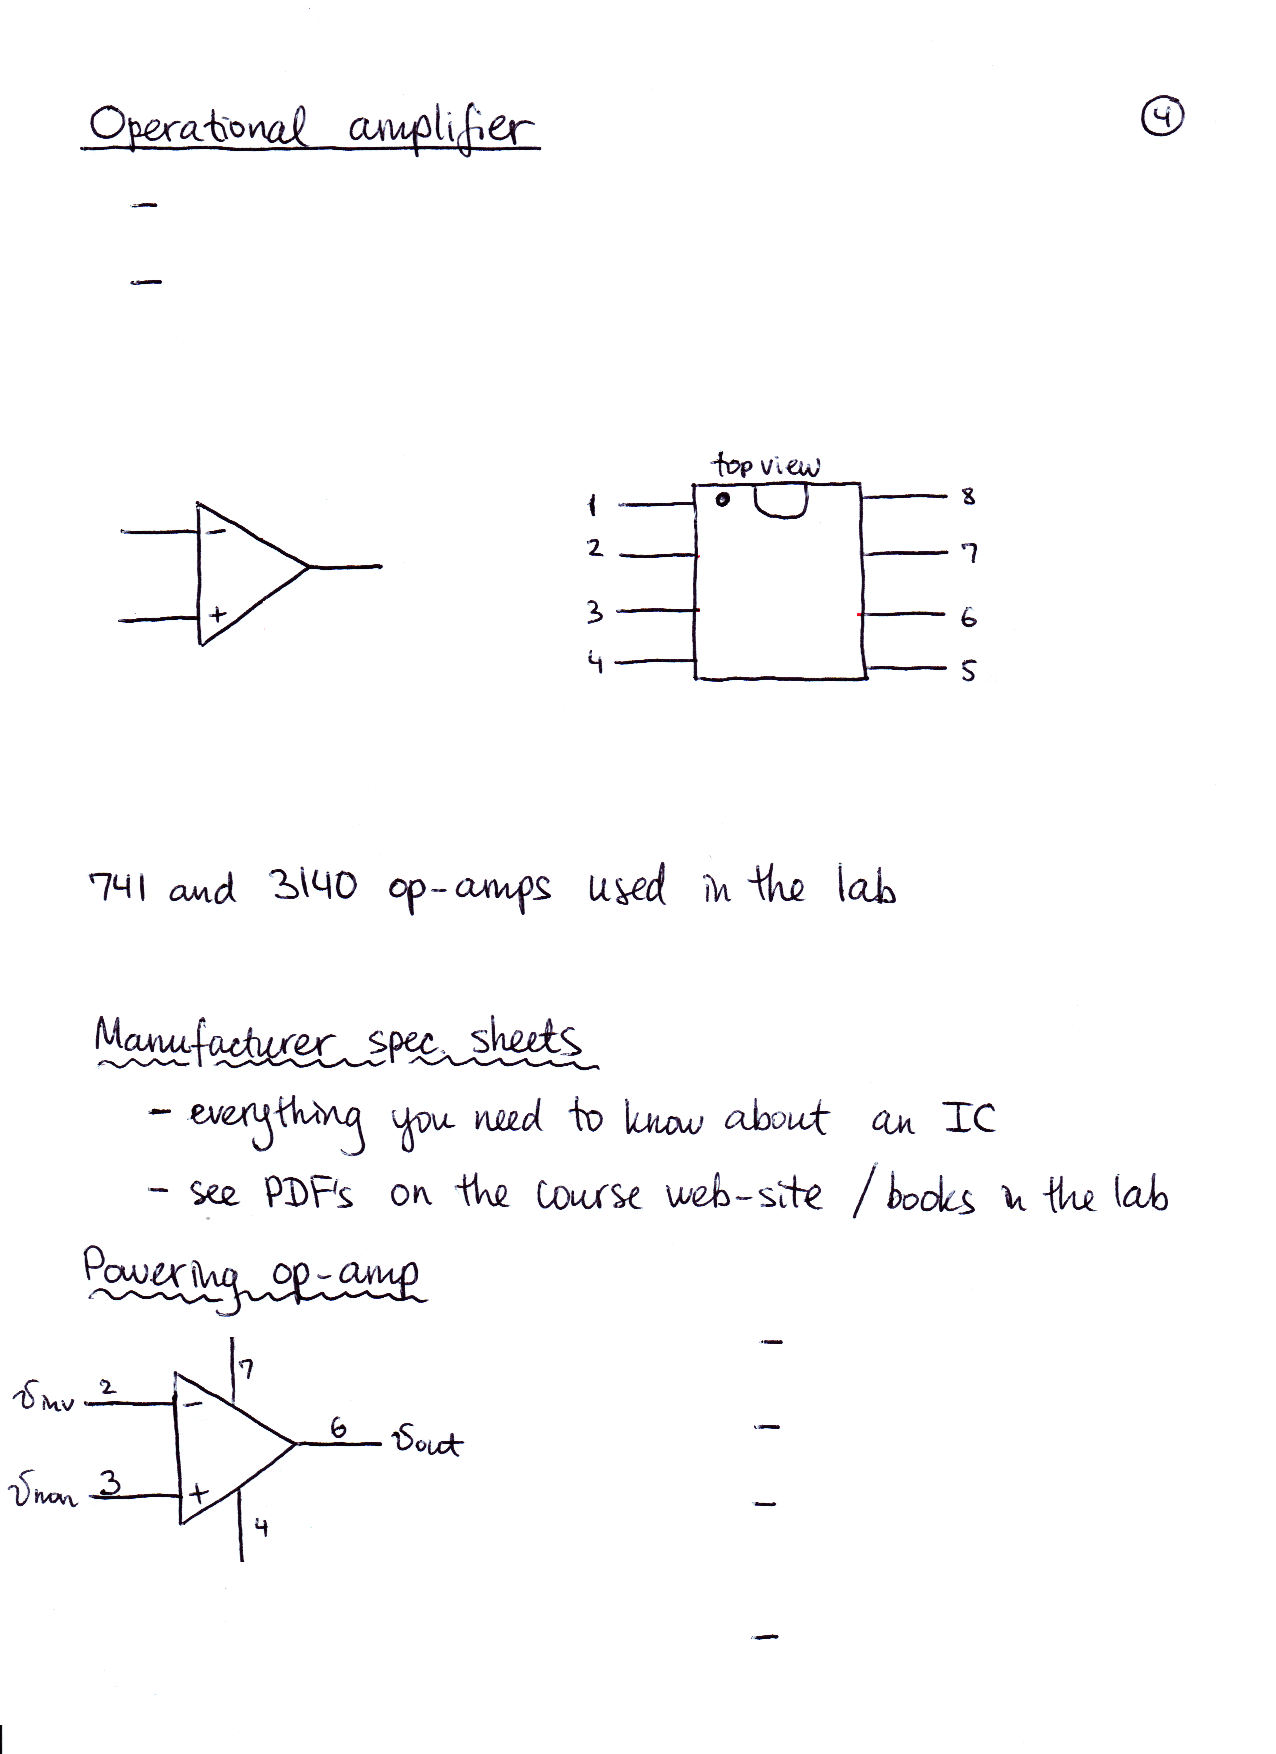 Operational amplifier
4
-
-
top view
- +
1 8
2 7
3 6
4 5
741 and 3140 op-amps used in the lab
Manufacturer spec. sheets
- everything you need to know about an IC
- see PDF's on the course web-site / books in the lab
Powering op-amp
7
vinv 2 -
6 vout
vnon 3 +
4
-
-
-
-